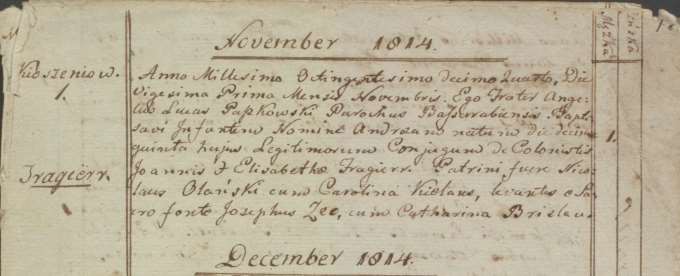 November 1814.
Męzka
Żeńska
Kuoszeniow.
1.
Anno Millesimo Octingentesimo decimo Quarto, Die
Vigesima Prima Mensis Novembris. Ego Frater Ange-
lus Lucas Papkowski Parochus Bassarabiensis Bapti-
savi Infantem Nomine Andream natum die decim
quinta hujus Legitimorum Conjugum de Colonistis
1.
Tragierr.
Joannis & Elisabethæ Tragierr. Patrini fuere Nico-
laus Olański cum Carolina Kielaus, levantes e Sa-
cro fonte Josephus Zee, cum Catharina Brislau.
December 1814.